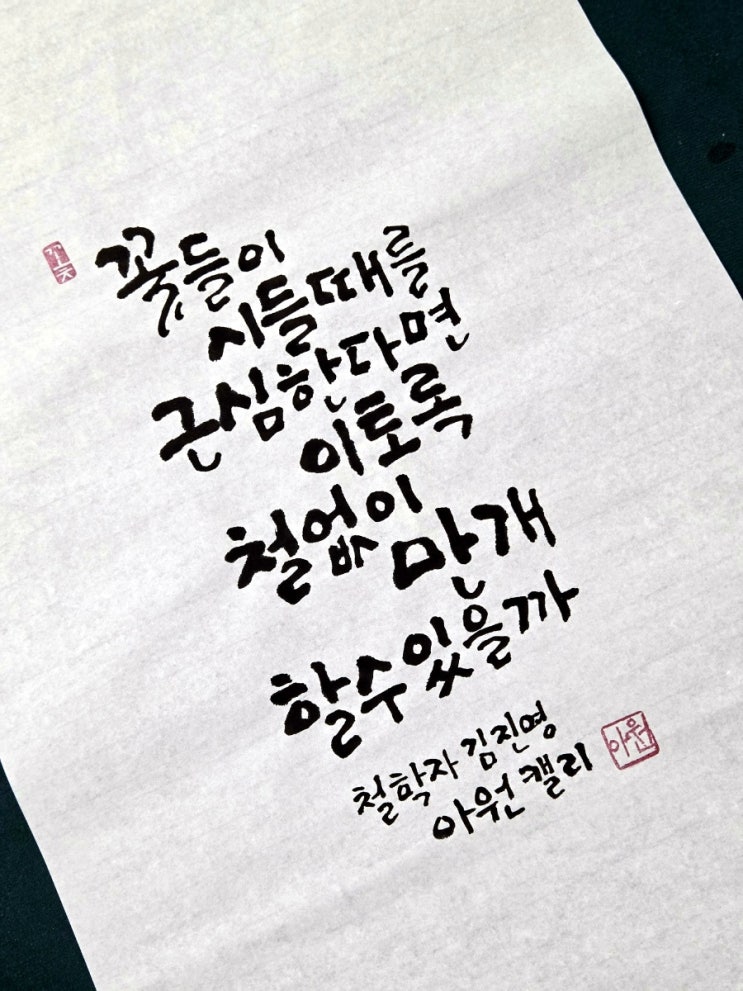 꽃
꽃들이
시들때를
근심한다면
이토록
철없이 만개
할수있을까
철학자 김진영
아원캘리
아원